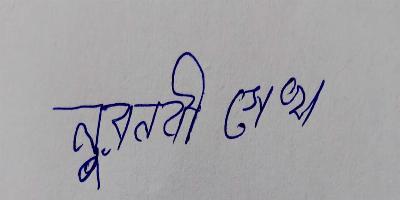 নুরনবী শেখ